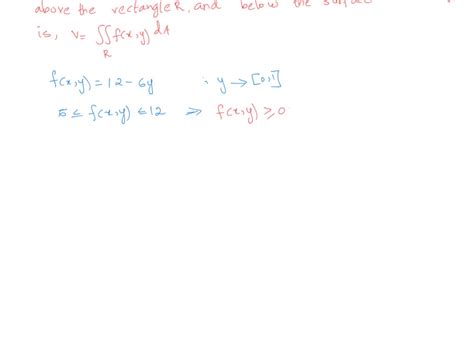 above the rectangle R, and below the surface
is, V = ∬ f(x,y) dA
R
f(x,y) = 12 - 6y ; y → [0,1]
6 ≤ f(x,y) ≤ 12 ⇒ f(x,y) ≥ 0